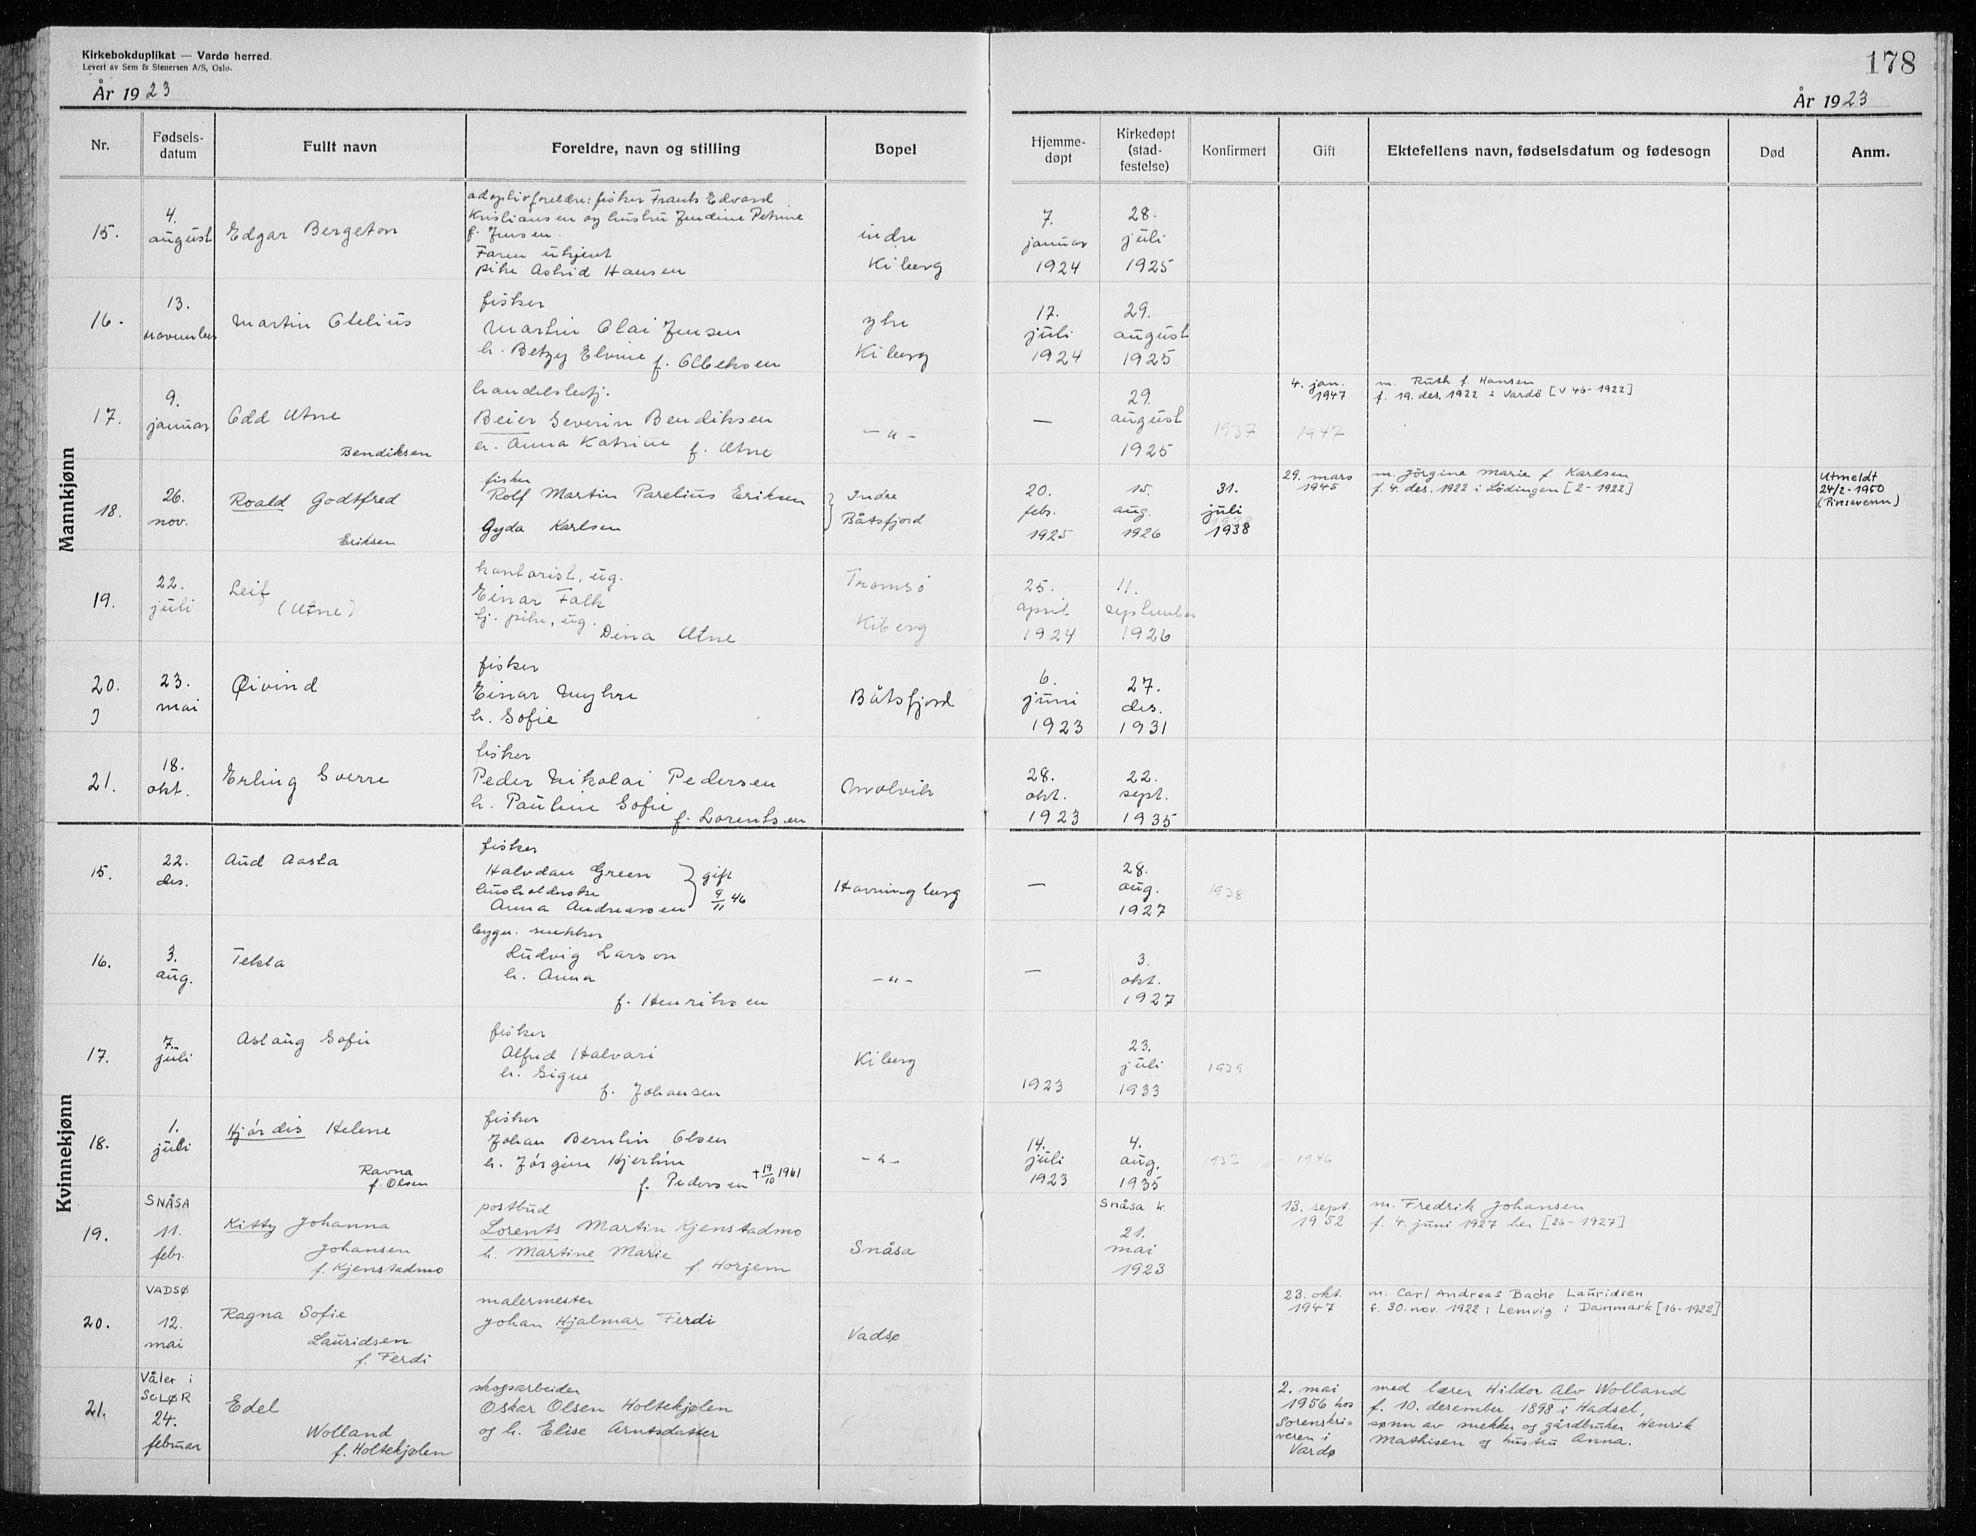 Kirkebokduplikat — Vardø herred.
Levert av Sem & Stenersen A/S, Oslo.
År 1923
178
År 1923
Nr.
Fødsels-
datum
Fullt navn
Foreldre, navn og stilling
Bopel
Hjemme-
døpt
Kirkedøpt
(stad-
festelse)
Konfirmert
Gift
Ektefellens navn, fødselsdatum og fødesogn
Død
Anm.
Mannkjønn
15.
4.
august
Edgar Bergeton
adoptivforeldre: fisker Frants Edvard
Kristiansen og hustru Jendine Petrine
f. Jensen.
Faren ukjent
pike Astrid Hansen
indre
Kiberg
7.
januar
1924
28.
juli
1925
16.
13.
november
Martin Otelius
fisker
Martin Olai Jensen
h. Betzy Elvine f.
ytre
Kiberg
17.
juli
1924
29.
august
1925
17.
9.
januar
Odd Utne
Bendiksen
handelsbetj.
Beier Severin Bendiksen
h. Anna Katrine f. Utne
— „ —
—
29.
august
1925
1937
4. jan.
1947
1947
m. Ruth f. Hansen
f. 19. des. 1922 i Vardö [V 46-1922]
18.
26.
nov.
Roald Godtfred
Eriksen
fisker
Rolf Martin Parelius Eriksen
Gyda Karlsen
Indre
Båtsfjord
20.
febr.
1925
15.
aug.
1926
31.
juli
1938
29. mars
1945
m. Jörgine Marie f. Karlsen
f. 4. des. 1922 i Lödingen [2-1922]
Utmeldt
24/2-1950
(Pinsevenn)
19.
22.
juli
Leif
(Utne)
kontorist, ug.
Einar Falk
tj. pike, ug.
Dina Utne
Tromsö
Kiberg
25.
april
1924
11.
september
1926
20.
23.
mai
Øivind
fisker
Einar Myhre
h. Sofie
Båtsfjord
6.
juni
1923
27.
des.
1931
21.
18.
okt.
Erling Sverre
fisker
Peder Nikolai Pedersen
h. Pauline Sofie
f. Lorentsen
Molvik
28.
okt.
1923
22.
sept.
1935
Kvinnekjønn
15.
22.
des.
Aud Aasta
fisker
Halvdan Green
husholderske
Anna Andreassen
gift
9/11 46
Havningberg
—
28.
aug.
1927
1938
16.
3.
aug.
Tekla
bygn. snekker
Ludvig Larson
h. Anna
f. Henriksen
— „ —
—
3.
okt.
1927
17.
7.
juli
Aslaug Sofie
fisker
Alfred Halvari
h. Signe
f. Johansen
Kiberg
1923
23.
juli
1933
1939
18.
1.
juli
Hjördis Helene
Ravna
f. Olsen
fisker
Johan Berntin Olsen
h. Jörgine Hjertine
f. Pedersen +19/10 1961
— „ —
14.
juli
1923
4.
aug.
1935
1946
19.
SNÅSA
11.
febr.
Kitty Johanna
Johansen
f. Kjenstadmo
postbud
Lorents Martin Kjenstadmo
h. Martine Marie
f. Horjem
Snåsa
Snåsa k.
21.
mai
1923
13. sept.
1952
m. Fredrik Johansen
f. 4. juni 1927 her [26-1927]
20.
VADSØ
12.
mai
Ragna Sofie
Lauridsen
f. Ferdi
malermester
Johan Hjalmar Ferdi
Vadsø
23. okt.
1947
m. Carl Andreas Bache Lauridsen
f. 30. nov. 1922 i Lemvig i Danmark [16-1922]
21.
Våler i
SOLØR
24.
februar
Edel
Wolland
f. Holtekjølen
skogsarbeider
Oskar Olsen Holtekjølen
og h. Elise Arntsdatter
2. mai
1956 hos
Sorenskri-
veren i
Vardø
med lærer Hildor Alv Wolland
f. 10. desember 1898 i Hadsel,
sønn av snekker og gårdbruker Henrik
Mathisen og hustru Anna.